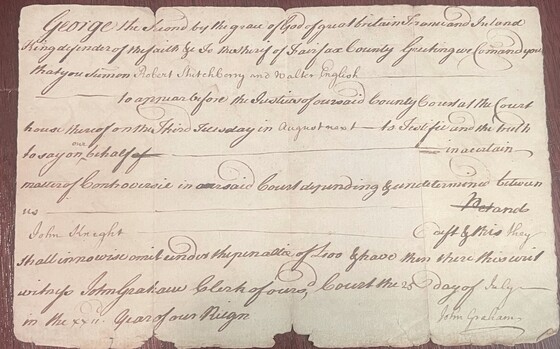 George the Second by the grace of God of great Britain France and Ireland
King defender of the faith & To the Sherif of Fairfax County Greeting we Comand you
that you Sumon Robert Stutchberry and Walter English
to appear before the Justices of our said County Court at the Court
house thereof on the Third Tuesday in August next to Testifie and the truth
to say on our behalf of in a certain
matter of Controversie in our said Court depending & undetermined between
us Pet and
John Knight Deft & this they
Shall in no wise omit under the penaltie of £100 & have then there this writ
witness John Graham Clerk of our sd. Court the 25 day of July
in the xxii. Year of our Reign
John Graham